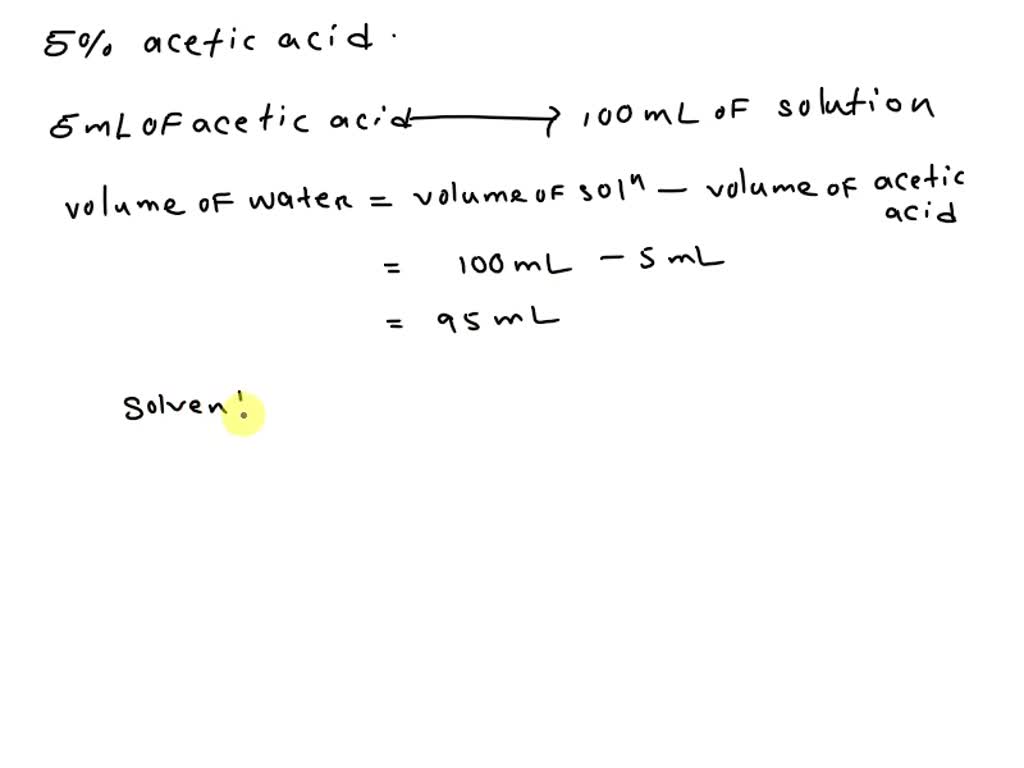 5% acetic acid.
5mL OF acetic acid → 100mL OF solution
volume OF water = volume OF solⁿ – volume OF acetic acid
= 100 mL – 5 mL
= 95 mL
Solven